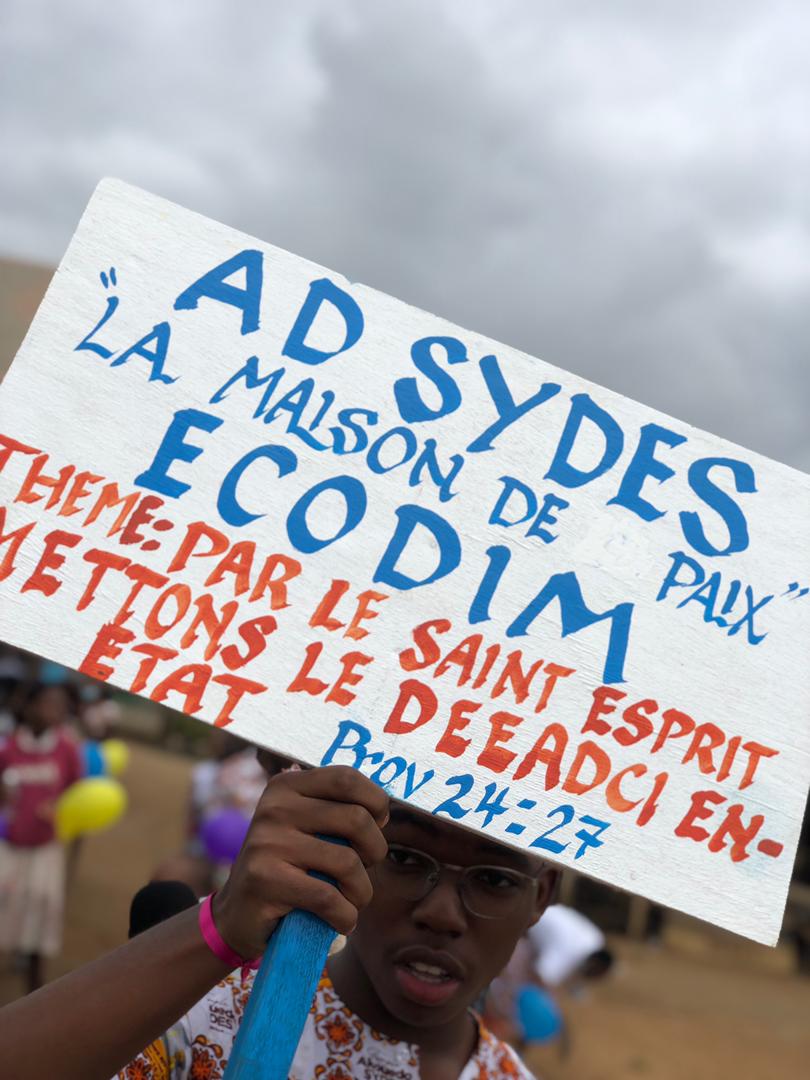 AD SYDES
"LA MAISON DE PAIX"
ECODIM
THEME: PAR LE SAINT ESPRIT
METTONS LE DEEADCI EN-
ETAT
Prov 24:27